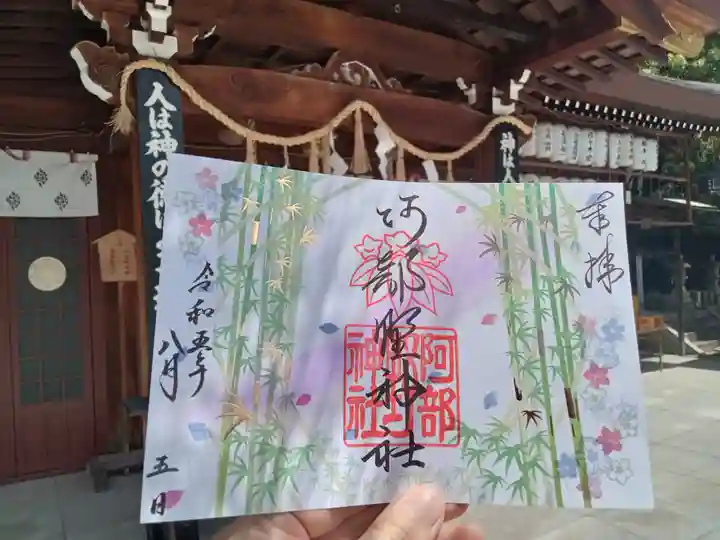 奉拝
阿部野神社
阿部
野
神社
令和五年
八月
五日
人は神の
神は人